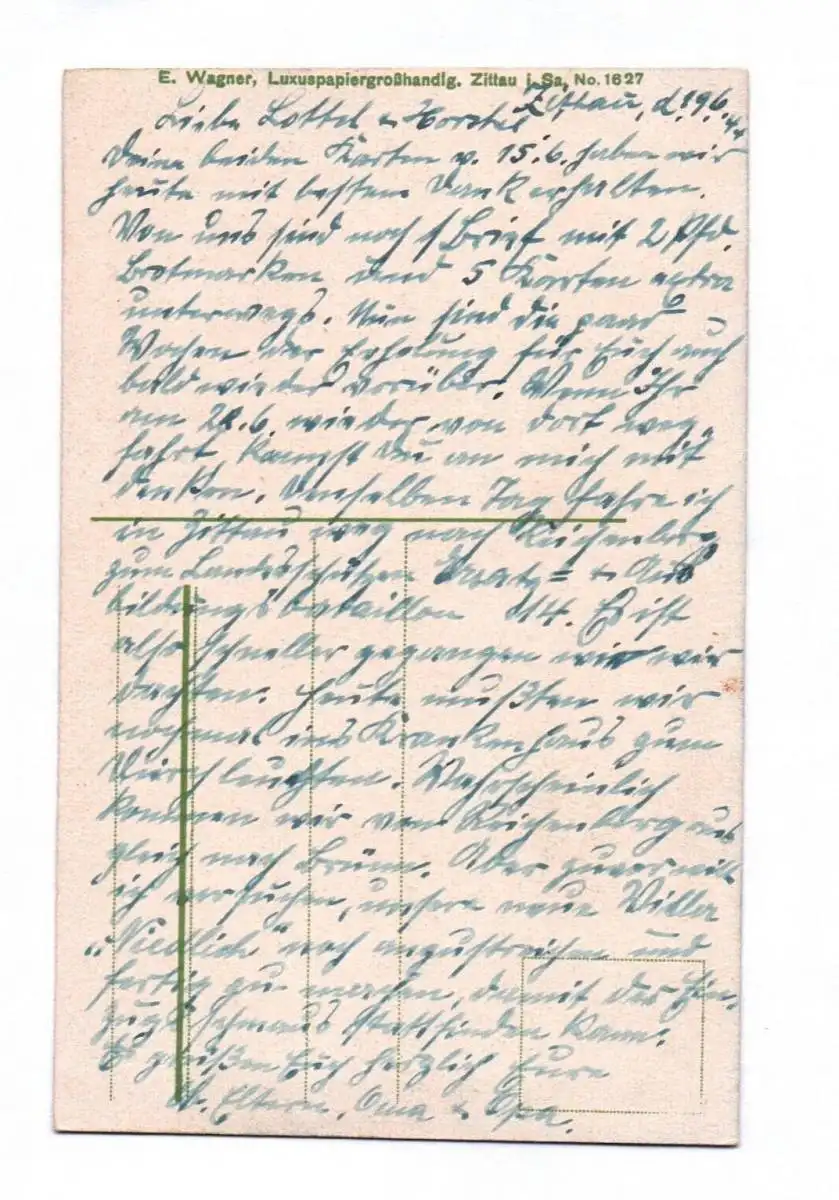 E. Wagner, Luxuspapiergroßhandlg. Zittau i. Sa, No. 1627
Zittau, d. 19.6.44
Liebe Lottel u. Horstel
Deine beiden Karten v. 15.6. haben wir
heute mit bestem Dank erhalten.
Von uns sind noch 1 Brief mit 2 Pfd.
Brotmarken und 5 Karten extra
unterwegs. Nun sind die paar
Wochen der Erholung für Euch auch
bald wieder vorüber. Wenn Ihr
am 6. wieder von dort weg
fahrt, kannst Du an mich mit
denken. Denselben Tag fahre ich
in Zittau weg nach Reichenberg
zum Landesschützen Ersatz= u. Aus
bildungsbataillon 14. Es ist
also schneller gegangen wie wir
dachten. Heute mußten wir
nochmal ins Krankenhaus zum
Durchleuchten. Wahrscheinlich
kommen wir von Reichenberg aus
gleich nach Brünn. Aber zuvor will
ich versuchen, unsere neue Villa
„Niedlich" noch anzustreichen und
fertig zu machen, damit der Ein.
zugsschmaus stattfinden kann.
Es grüßen Euch herzlich Eure
lb. Eltern, Oma u. Opa.